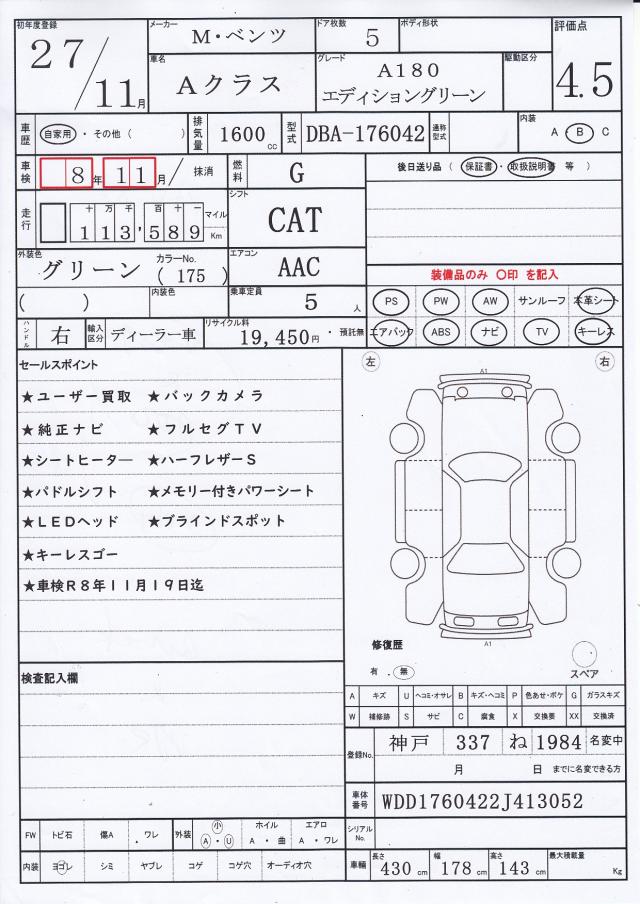 初年度登録 メーカー M・ベンツ ドア枚数 5 ボディ形状 評価点
27/11月 車名 Aクラス グレード A180 エディショングリーン 駆動区分 4.5
車歴 自家用・その他( ) 排気量 1600cc 型式 DBA-176042 通称型式 内装 A・B C
車検 8年11月/ 抹消 燃料 G 後日送り品(保証書・取扱説明書 等)
走行 十 万 千 百 十 一 113,589 マイル Km シフト CAT
外装色 グリーン カラーNo.(175) エアコン AAC 装備品のみ 〇印 を記入
( ) 内装色 乗車定員 5人 PS PW AW サンルーフ 本革シート
ハンドル 右 輸入区分 ディーラー車 リサイクル料 19,450円・預託無 エアバック ABS ナビ TV キーレス
セールスポイント 左 右
A1
★ユーザー買取 ★バックカメラ
★純正ナビ ★フルセグTV
★シートヒーター ★ハーフレザーS
★パドルシフト ★メモリー付きパワーシート
★LEDヘッド ★ブラインドスポット
★キーレスゴー
★車検R8年11月19日迄
A1
修復歴
有 . 無 スペア
検査記入欄
A キズ U ヘコミ・オサレ B キズ・ヘコミ P 色あせ・ボケ G ガラスキズ
W 補修跡 S サビ C 腐食 X 交換要 XX 交換済
登録No. 神戸 337 ね 1984 名変中
月 日 までに名変できる方
車体番号 WDD1760422J413052
FW トビ石 傷A .ワレ 外装 小 A・U ホイル A・曲 エアロ A・ワレ シリアルNo.
内装 ヨゴレ シミ ヤブレ コゲ コゲ穴 オーディオ穴 車輌 長さ 430cm 幅 178cm 高さ 143cm 最大積載量 Kg